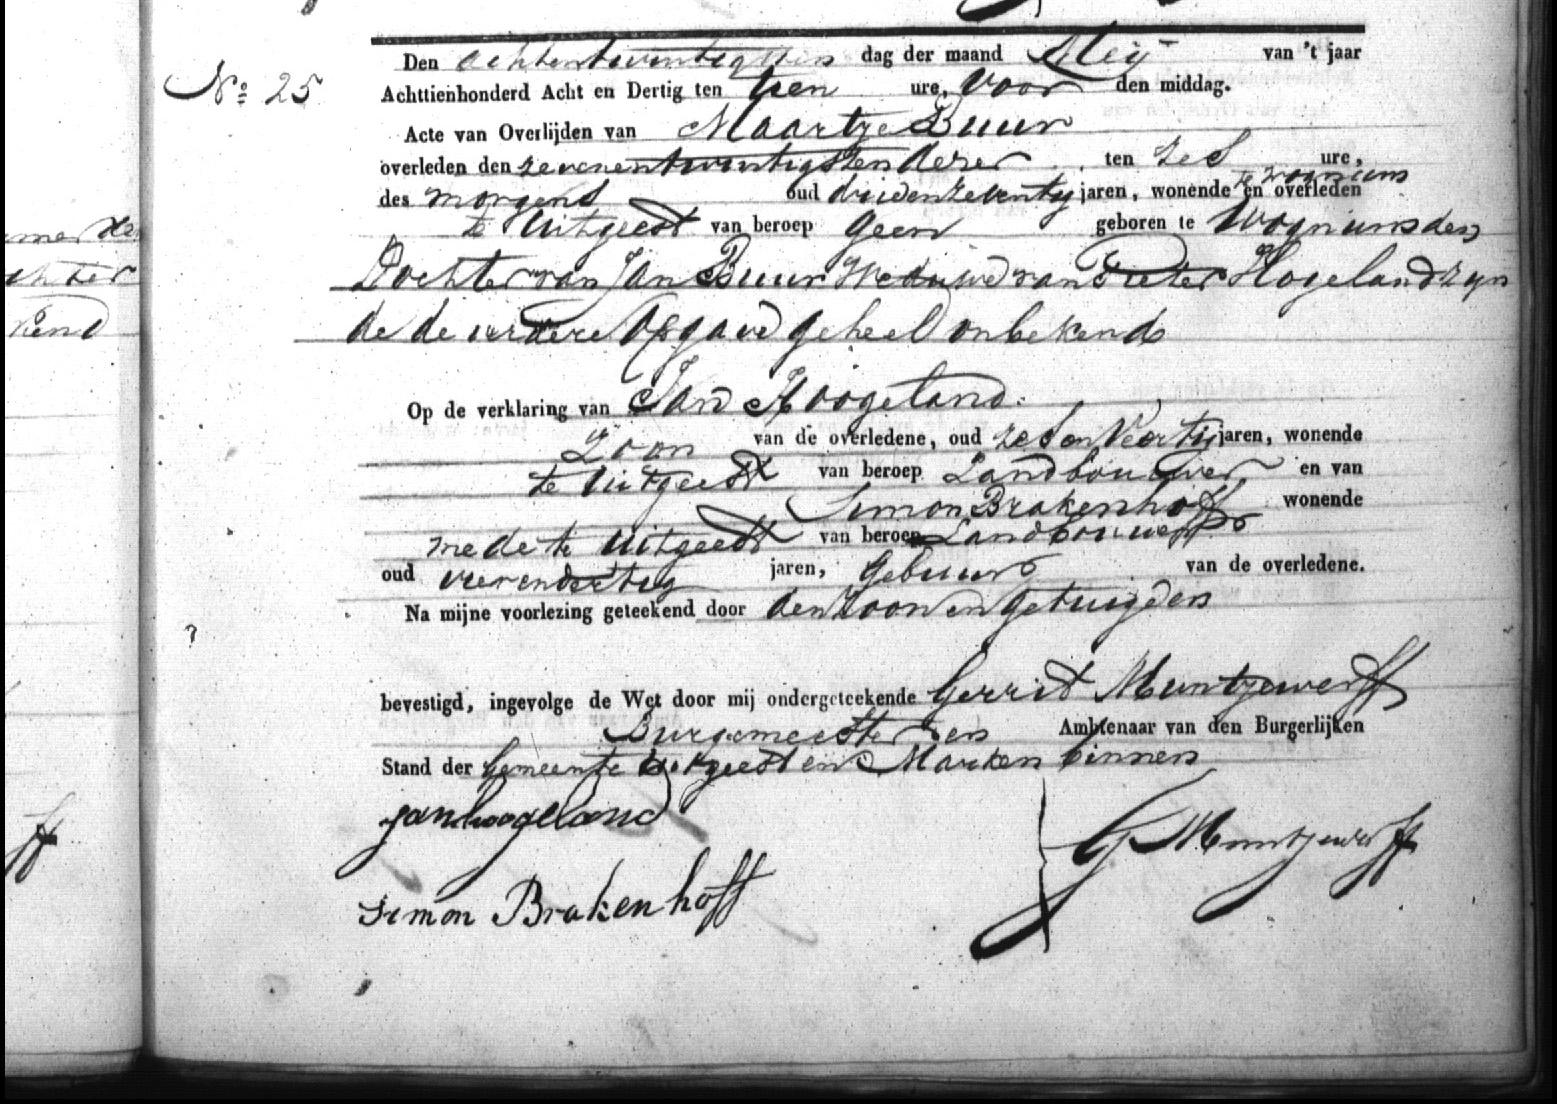 No 25
Den achtentwintigsten dag der maand Meij van 't jaar
Achttienhonderd Acht en Dertig ten tien ure, voor den middag.
Acte van Overlijden van Maartje Buur
overleden den zevenentwintigsten dezer ten zes ure,
des morgens oud driienzeventig jaren, wonende te wognums en overleden
te Uitgeest van beroep geen geboren te Wognums den
Dochter van Jan Buur Weduwe van Pieter Hogeland zyn
de de verdere Opgave geheel onbekend
Op de verklaring van Jan Hoogeland.
Zoon van de overledene, oud zes en Veertig jaren, wonende
te Uitgeest van beroep Landbouwer en van
Simon Brakenhoff wonende
mede te Uitgeest van beroep Landbouwer
oud vierendertig jaren, gebuur van de overledene.
Na mijne voorlezing geteekend door den zoon en getuigden
bevestigd, ingevolge de Wet door mij ondergeteekende Gerrit Muntjewerff
Burgemeester en Ambtenaar van den Burgerlijken
Stand der Gemeente Uitgeest en Marken binnen
jan hoogeland
G Muntjewerff
Simon Brakenhoff